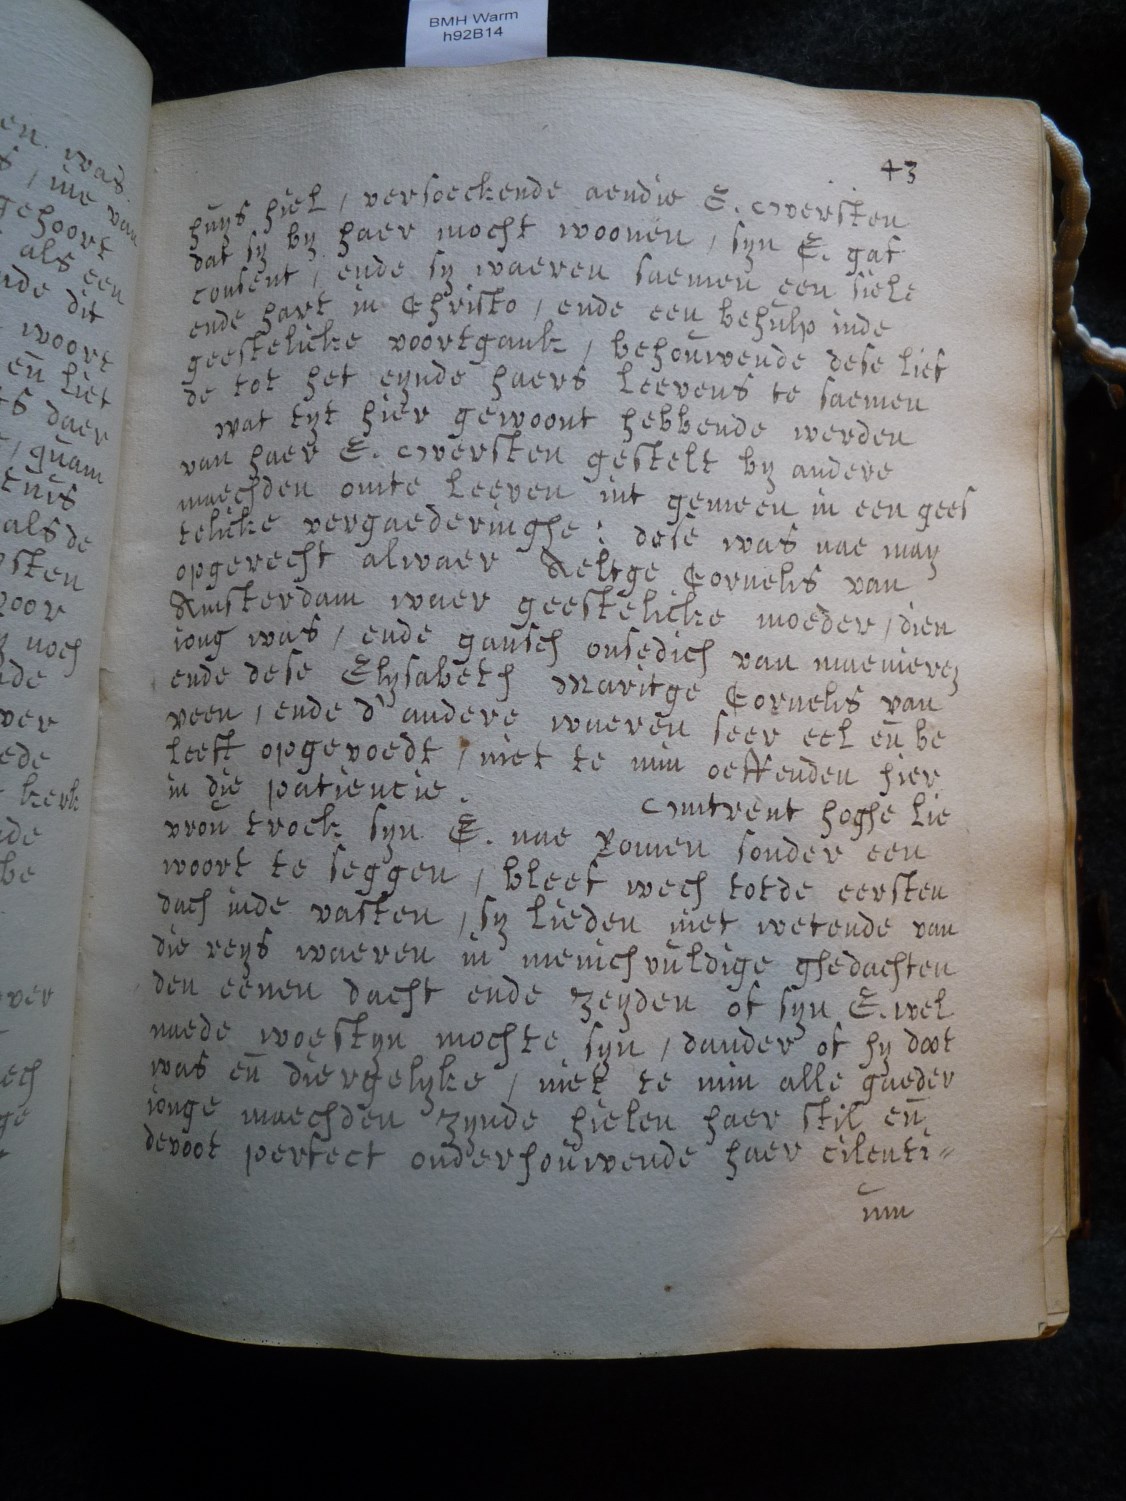 BMH Warm
h92B14
en was
gehoort
als een
nde dit
woort
en liet
ts daer
quam
als de
noch
kerk
43
huys hiel / versoeckende aendie E. oversten
dat sy by haer mocht woonen / syn E. gaf
consent / ende sy waeren saemen een siele
ende hart in Christo / ende een behulp inde
geestelicke voortgank / behouwende dese lief
de tot het eynde haers leevens te saemen
wat tyt hier gewoont hebbende werden
van haer E. oversten gestelt by andere
maechden omte leeven int gemeen in een gees
telicke vergaederinghe : dese was nae may
opgerecht alwaer Aeltge Cornelis van
Amsterdam waer geestelicke moeder / dien
iong was / ende gansch onsedich van maenieren
ende dese Elysabeth Maritge Cornelis van
veen / ende d' andere waeren seer eel en be
leeft opgevoedt / niet te min oeffenden hier
in die patiencie. Omtrent hoghe lie
vrou trock syn E. nae Romen sonder een
woort te seggen / bleef wech totde eersten
dach inde vasten / sy lieden niet wetende van
die reys waeren in menichvuldige ghedachten
den eenen dacht ende zeyden of syn E. wel
naede woestyn mochte syn / dander of hy doot
was en diergelyke / niet te min alle gaeder
ionge maechden zynde hielen haer stil en
devoot perfect onderhouwende haer cilenti=
um